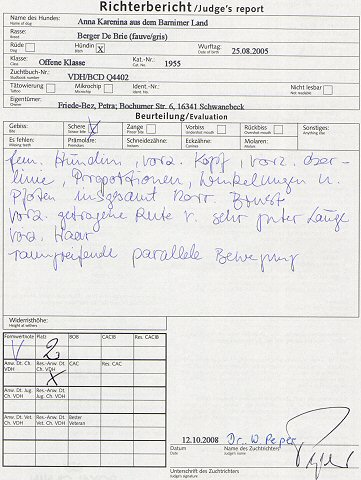 Richterbericht/Judge's report
Name des Hundes: Anna Karenina aus dem Barnimer Land
Name of dog
Rasse: Berger De Brie (fauve/gris)
Breed
Rüde Hündin X Wurftag: 25.08.2005
Dog Bitch Date of birth
Klasse: Offene Klasse Kat.-Nr.: 1955
Class Cat. No.
Zuchtbuch-Nr.: VDH/BCD Q4402
Studbook number
Tätowierung Mikrochip Ident.-Nr.: Nicht lesbar
Tattoo Microchip Ident.-No. Not readable
Eigentümer: Friede-Bez, Petra; Bochumer Str. 6, 16341 Schwanebeck
Owner
Beurteilung/Evaluation
Gebiss: Schere Zange Vorbiss Rückbiss Sonstiges:
Bite Scissor bite Pincer bite undershot mouth overshot mouth Anything else
Es fehlen: Prämolare: Schneidezähne: Eckzähne: Molaren:
Missing teeth Premolars Incisors Canines Molars
fem. Hündin, vorz. Kopf, vorz. Ober-
linie, Proportionen, Winkelungen u.
Pfoten insgesamt korr. Brust
vorz. getragene Rute v. sehr guter Länge
vorz. Haar
raumgreifende parallele Bewegung
Widerristhöhe:
Height at withers
Formwertnote Platz BOB CACIB Res. CACIB
V 2
Anw. Dt. Ch. VDH Res.-Anw. Dt. Ch. VDH CAC Res. CAC
X
Anw. Dt. Jug. Ch. VDH Res.-Anw. Dt. Jug. Ch. VDH
Anw. Dt. Vet. Ch. VDH Res.-Anw. Dt. Vet. Ch. VDH Bester Veteran
12.10.2008 Dr. W. Peper
Datum Name des Zuchtrichters
Date Judge's name
Peper
Unterschrift des Zuchtrichters
Judge's signature